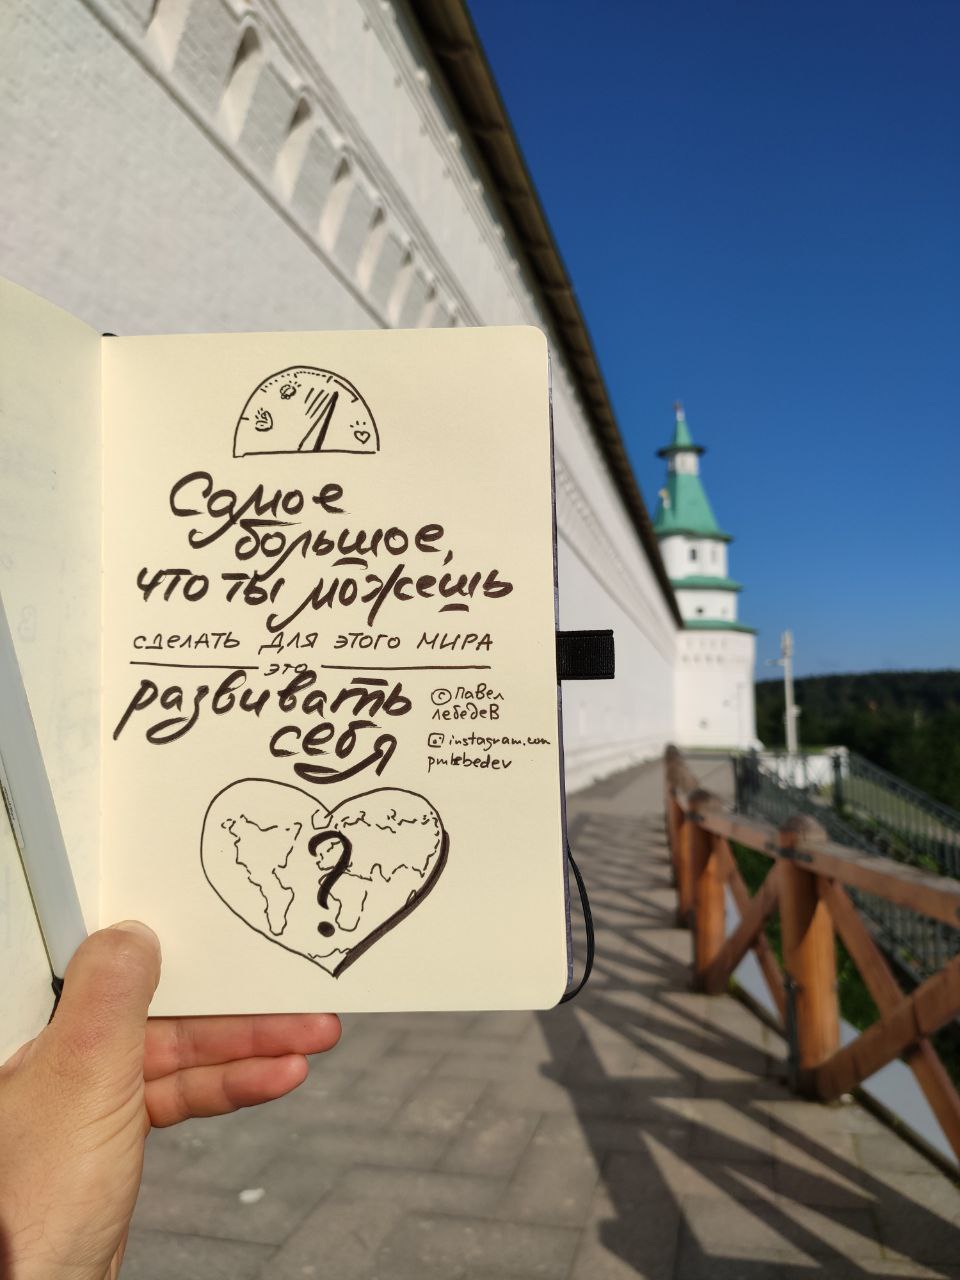 Самое
большое,
что ты можешь
сделать для этого мира
это
развивать
себя
© Павел
Лебедев
instagram.com
pmlebedev
?